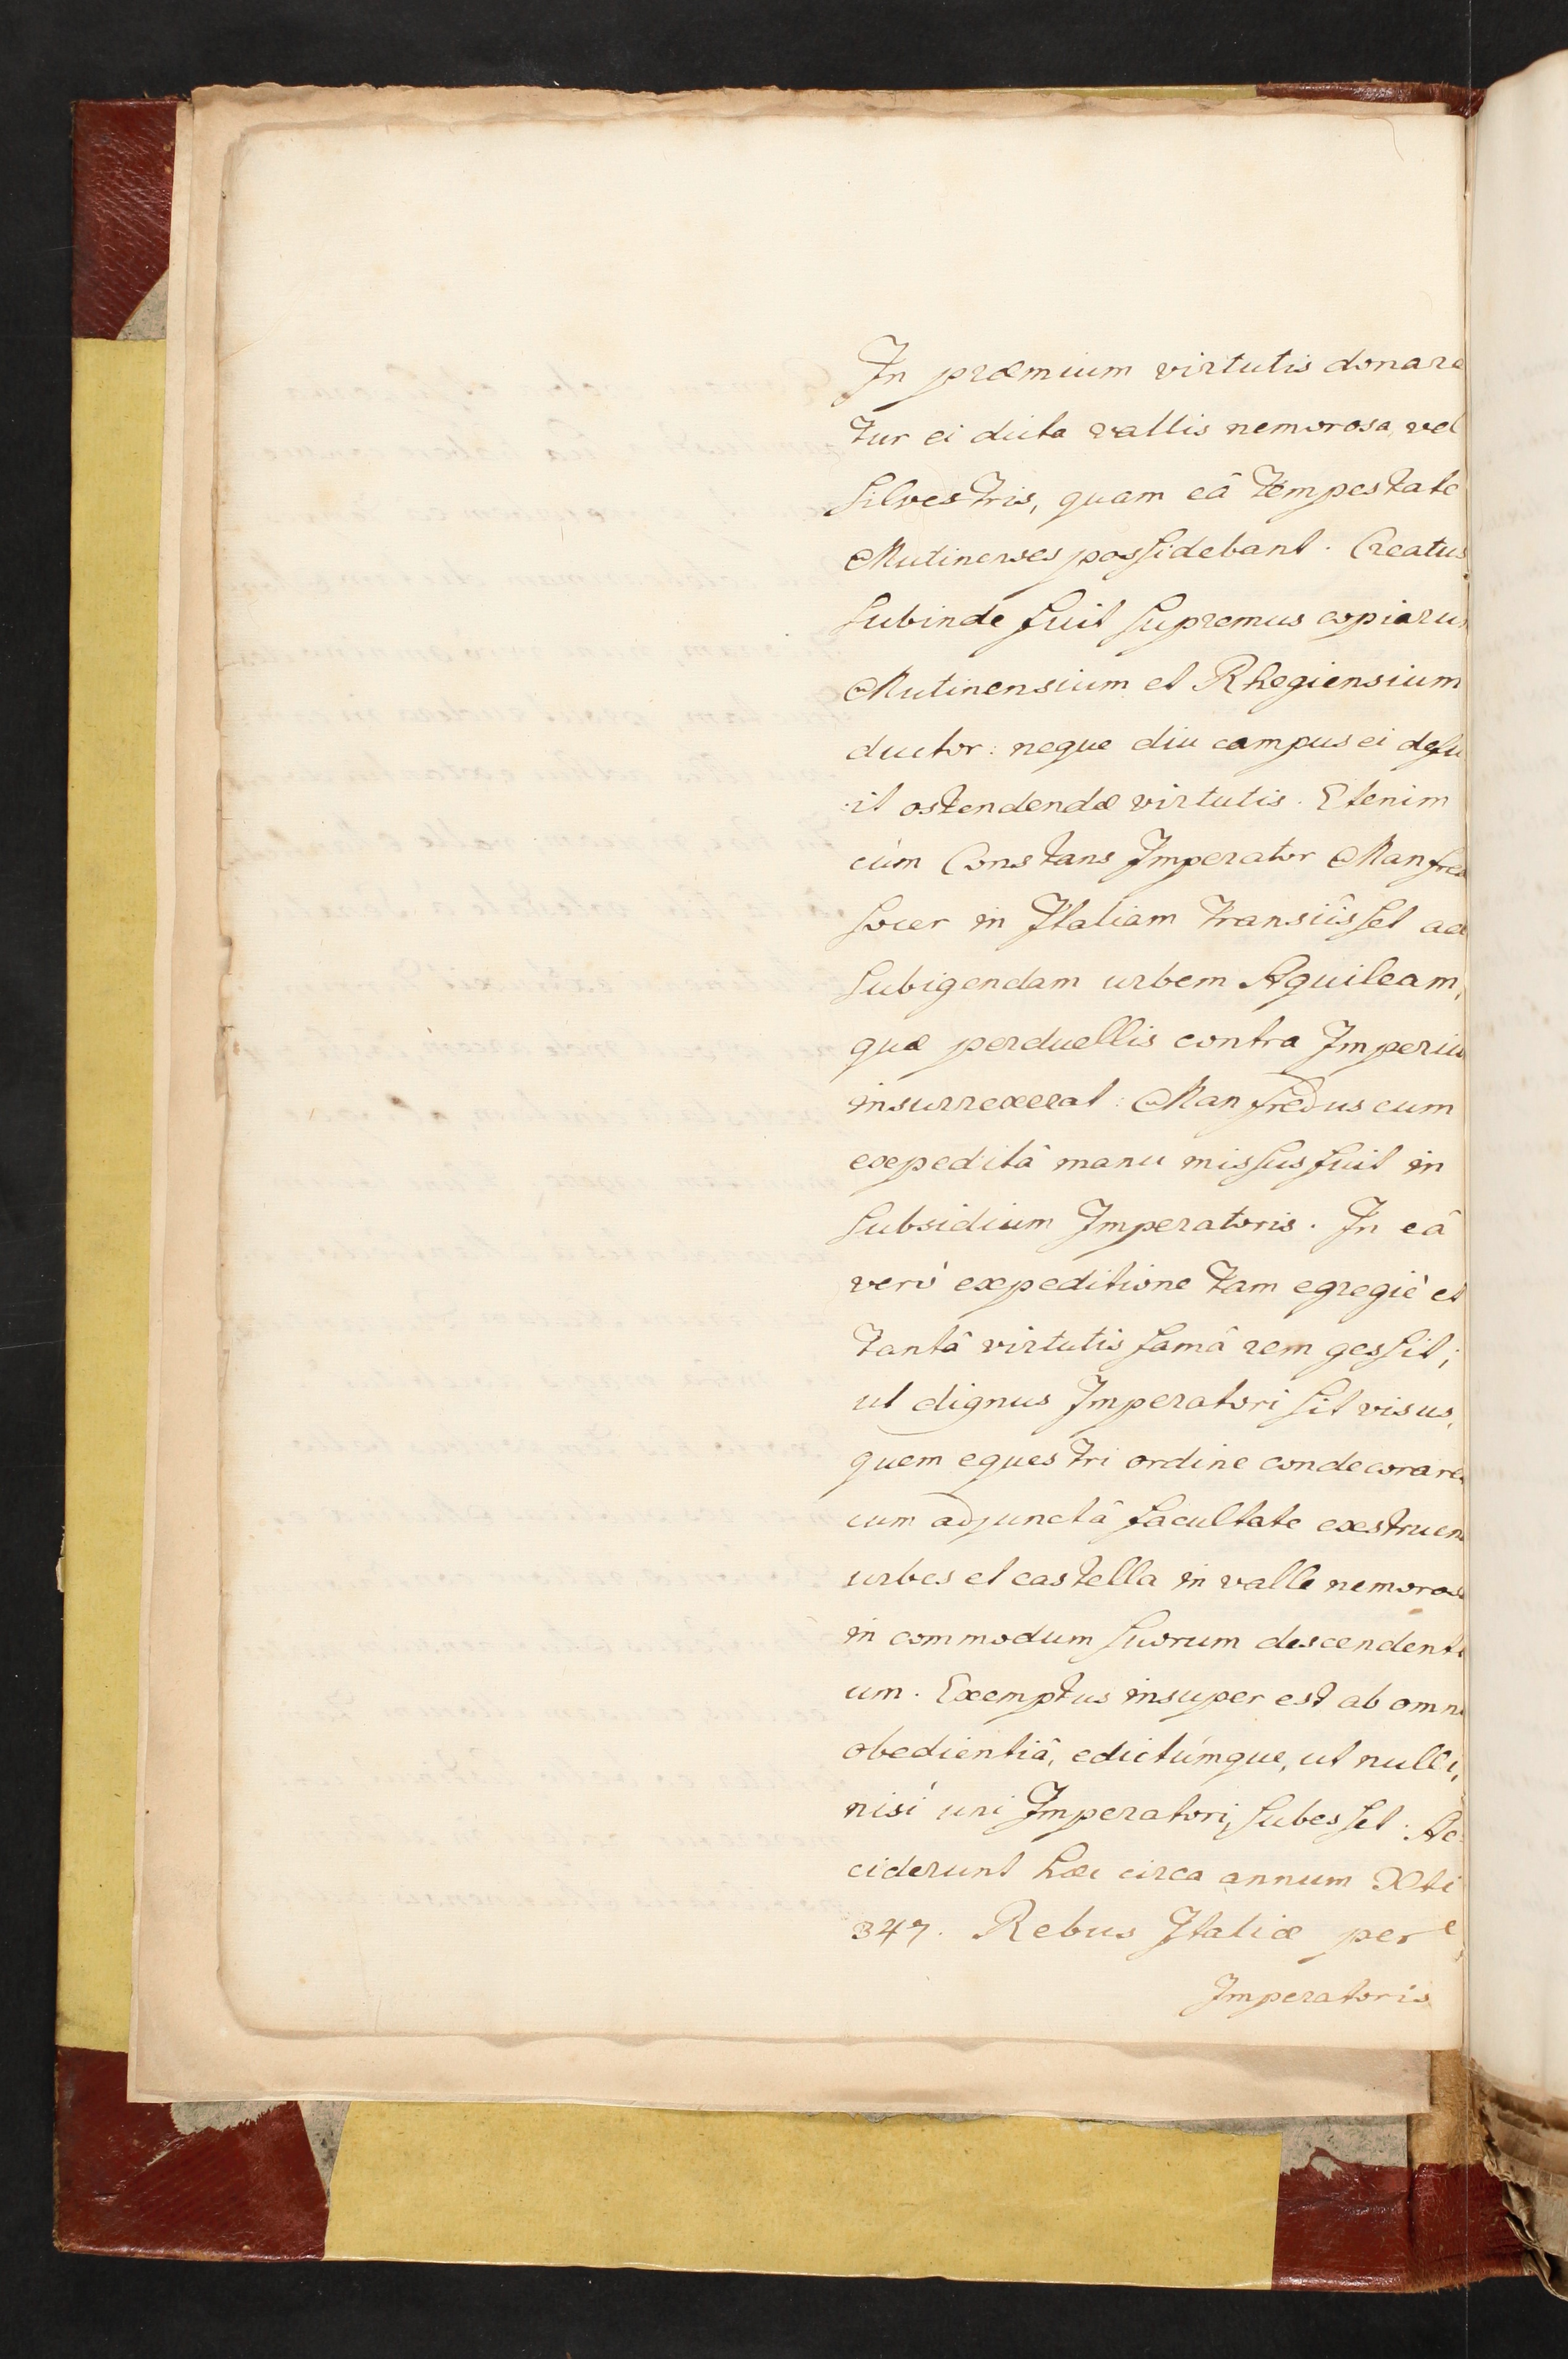 In præmium virtutis donare
tur ei dicta vallis nemorosa, vel
silvestris, quam eâ tempestate
Mutinenses possidebant. Creatus
subinde fuit supremus copiaru
Mutinensium et Rhegiensium
ductor: neque diu campus ei defu
it ostendendæ virtutis. Etenim
cùm Constans Imperator Manfre
socer in Italiam transiîsset ad
subigendam urbem Aquileam,
quæ perduellis contra Imperiu
insurrexerat: Manfredus cum
expeditâ manu missus fuit in
subsidium Imperatoris. In eâ
verò expeditione tam egregiè et
tantâ virtutis famâ rem gessit;
ut dignus Imperatori sit visus,
quem equestri ordine condecorare
cum adjunctâ facultate exstruen
urbes et castella in valle nemoros
in commodum suorum descendenti
um. Exemptus insuper est ab omni
obedientiâ, edictúmque, ut nulli,
nisi uni Imperatori, subesset. Ac
ciderunt hæc circa annum Xti
347. Rebus Italiæ per
Imperatoris